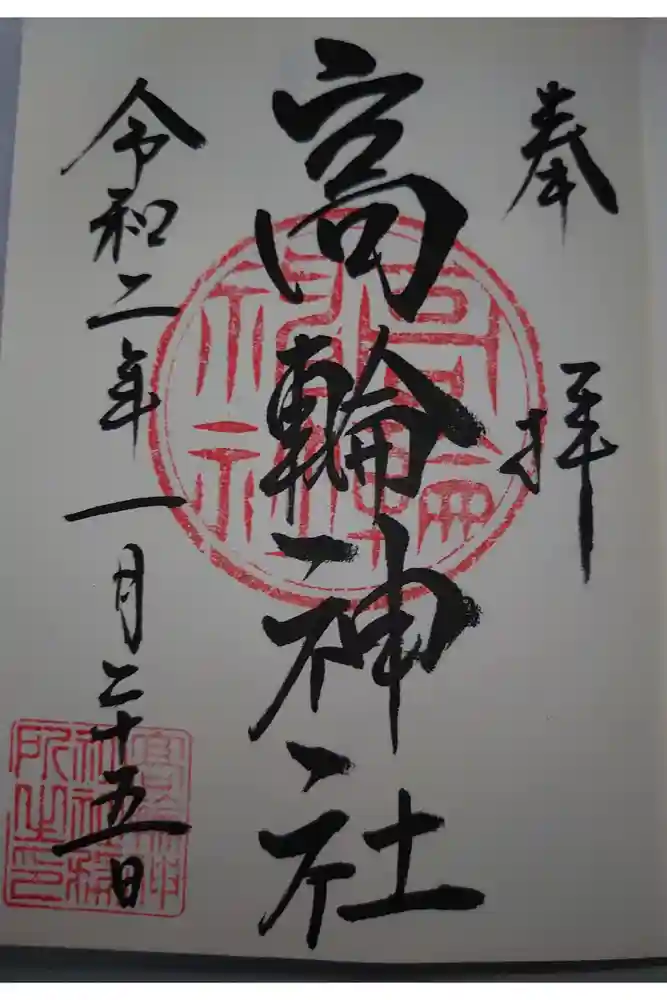 奉拝
高輪神社
令和二年一月二十五日
高輪神社